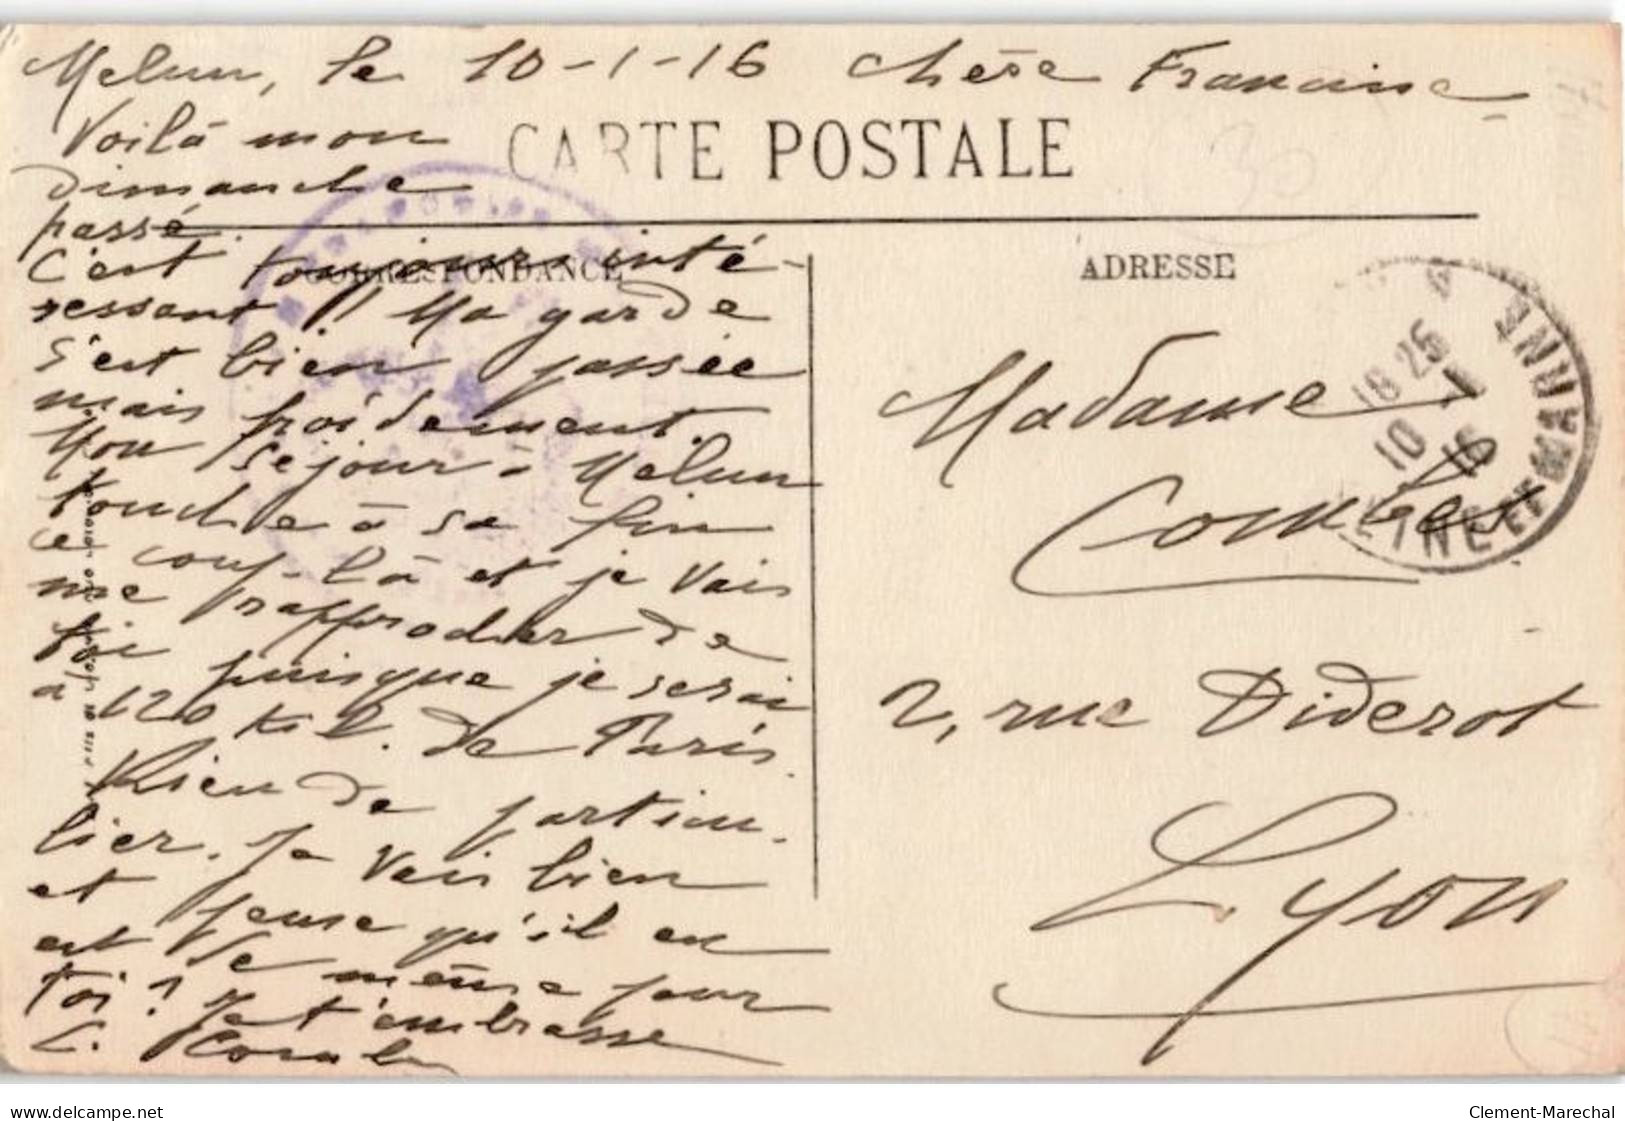 Melun, le 10-1-16 Chère Francine
Voilà mon
dimanche
passé.
C'est toujours inté-
ressant !! Ma garde
s'est bien passée
mais froidement.
Mon séjour à Melun
touche à sa fin
ce coup-là et je vais
me rapprocher de
toi puisque je serai
à 120 kil. de Paris.
Rien de particu-
lier. Je vais bien
et pense qu'il en
est de même pour
toi ? Je t'embrasse
L. Comb
CARTE POSTALE
CORRESPONDANCE
ADRESSE
Madame
Combes
2, rue Diderot
Lyon
MELUN
18 25
10 -1
16
SEINE-ET-M
30
delcampe.net
Clement-Marechal